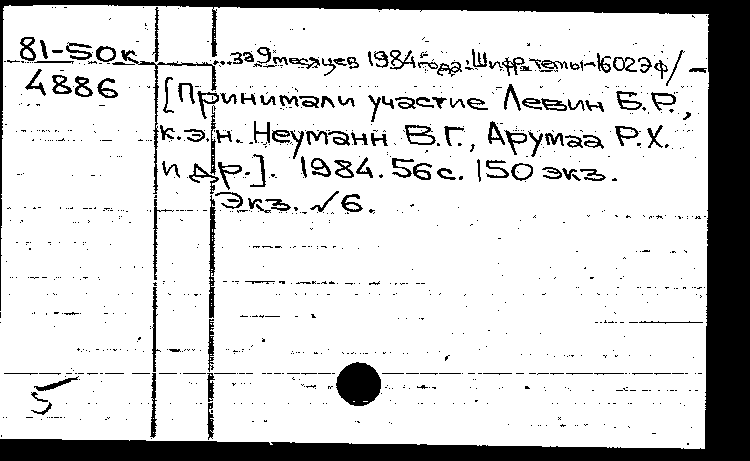 81-50к
4886
...за 9 месяцев 1984 года: Шифр темы-1602Эф/ –
[Принимали участие Левин Б.Р.,
к.э.н. Неуманн В.Г., Арумаа Р.Х.
и др.]. 1984. 56 с. 150 экз.
Экз. √6.
5